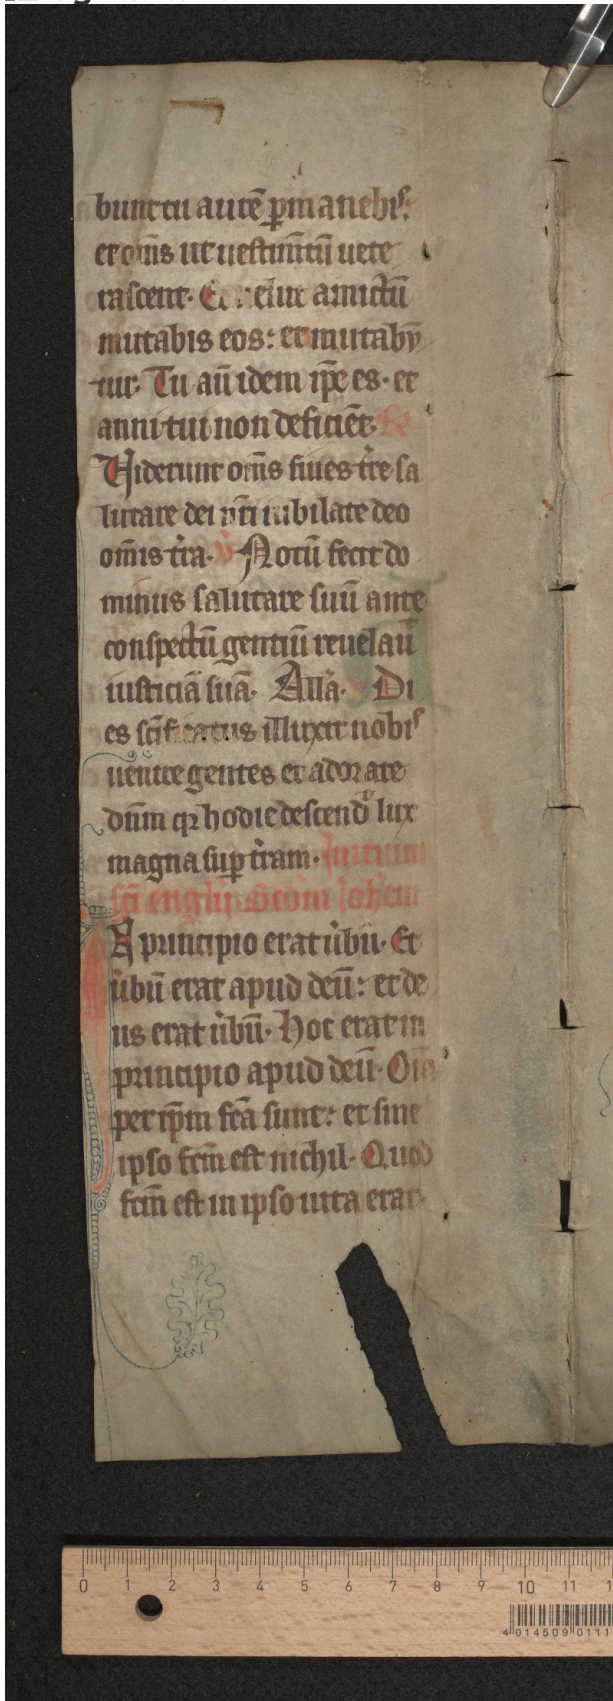 bunt tu autē ꝑmanebis:
et om̄s ut uestimt̄ū uete
rascent. Et uelut amictū
mutabis eos: et mutabū
tur. Tu aū idem ip̄e es. et
anni tui non deficiēt.
Viderunt om̄s fines t̄re sa
lutare dei nr̄i iubilate deo
om̄is t̄ra. v Notū fecit do
minus salutare suū ante
conspectū gentiū reuelau̅
iusticiā suā. All̄a. v Di
es sc̄ificatus illuxit nobis
uenite gentes et adorate
dn̄m qꝛ hodie descend̄ lux
magna suꝑ t̄ram. Initium
sc̄i eug̅lij. Scd̄m Joh̄em
In principio erat ūbū. Et
ūbū erat apud deū: et de
us erat ūbū. Hoc erat in
principio apud deū. Om̄a
per ip̄m fc̄a sunt: et sine
ipso fc̄m est nichil. Quod
fc̄m est in ipso uita erat.
0 1 2 3 4 5 6 7 8 9 10 11
4 014509 0111